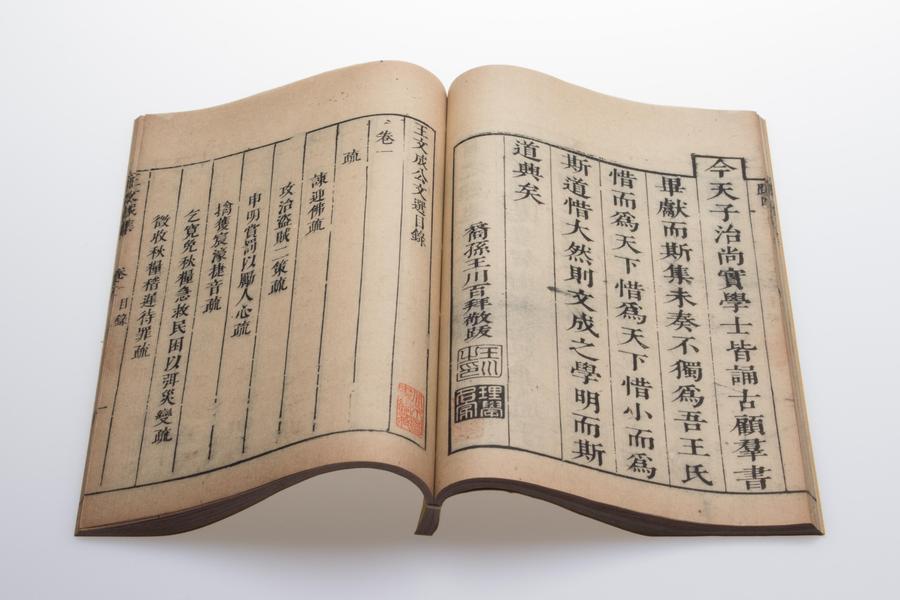 今天子治尚實學士皆誦古顧羣書
畢獻而斯集未奏不獨為吾王氏
惜而為天下惜為天下惜小而為
斯道惜大然則文成之學明而斯
道興矣
裔孫王川百拜敬跋
王川之印
理學名家
王文成公文選目錄
卷一
疏
諫迎佛疏
攻治盜賊二策疏
申明賞罰以勵人心疏
擒獲宸濠捷音疏
乞寬免秋糧急救民困以弭災變疏
徵收秋糧稽遲待罪疏
卷一 目錄